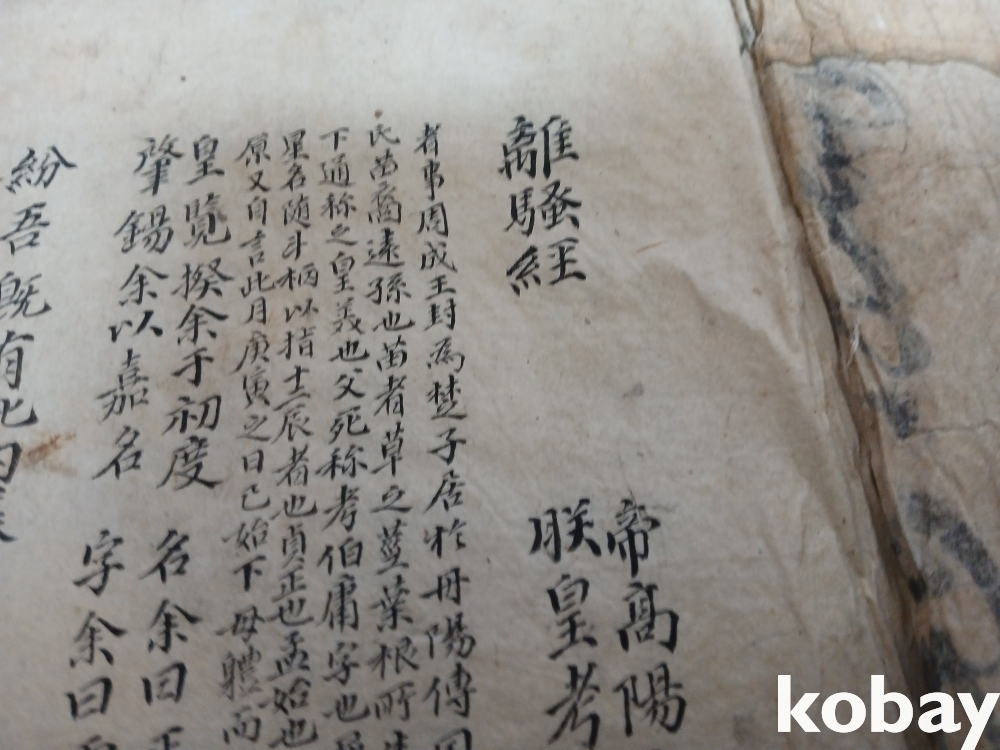 離騷經
帝髙陽
朕皇考
者事周成王封為楚子居於丹陽傳國
氏苗裔遠孫也苗者草之莖葉根所生
下通称之皇義也父死称考伯庸字也
星名随斗柄以指十二辰者也貞正也孟始也
原又自言此月庚寅之日己始下母軆而
皇覽揆余于初度
名余曰正
肇錫余以嘉名
字余曰
紛吾既有此內
kobay